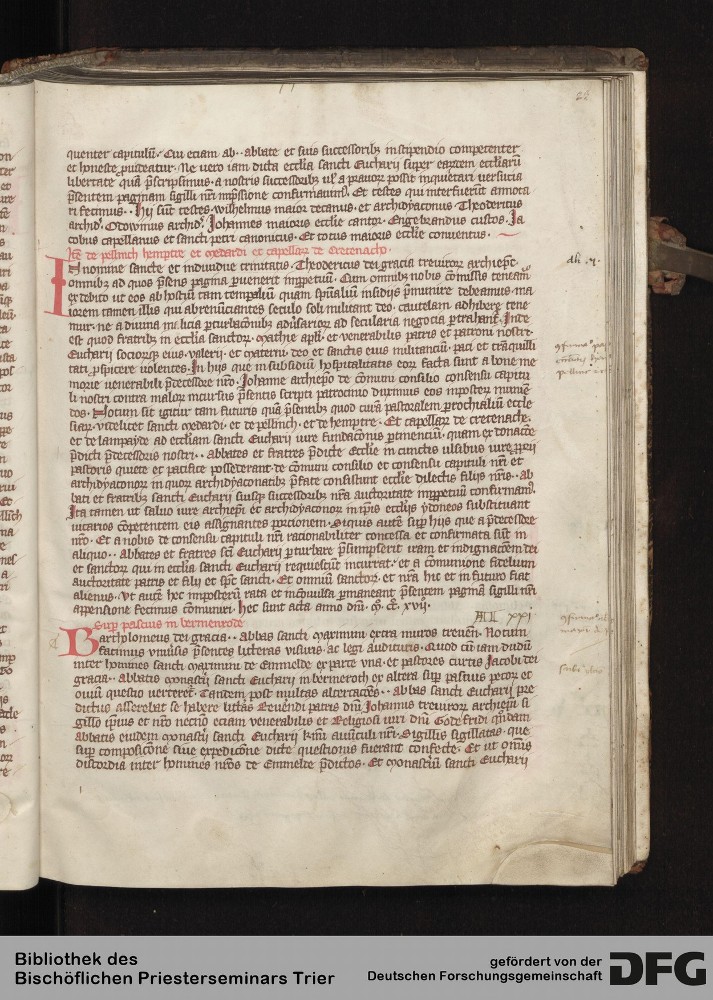 22
quenter capitulū. Cui eciam ab . . abbate et suis successoribꝫ in stipendio competenter
et honeste ꝓuideatur. Ne vero iam dicta ecclīa sancti Eucharij super earꝫdem ecclīarū
libertate quā p̄scripsimus. a nostris successoribꝫ vl̓ a prauorꝫ possit inquietari versucia
p̄sentem paginam sigilli nr̄i inp̄ssione confirmauimꝰ. Et testes qui interfuerūt annota
ri fecimus. . Hij sūt testes. wilhelmus maior decanus. et archidyaconus. Theodericus
archid̓. Otowinus archid̓. Johannes maioris ecclīe cantor. Engebrandus custos. Ja
cobus capellanus et sancti petri canonicus. Et totus maioris ecclīe conuentus.
de pellinch hemptre et medardi et capellarꝫ de Cretenacho.
In nomine sancte et indiuidue trinitatis. Theodericus dei gracia treuirorꝫ archiep̄c.
omnibꝫ ad quos p̄sens pagina ꝑuenerit inp̄petuū. Cum omnibꝫ nobis cōmissis teneamꝰ
ex debito ut eos ab hostiū tam temꝑaliū quam spūaliū insidijs p̄munire debeamus. ma
iorem tamen illis qui abrenūciantes seculo soli militant deo. cautelam adhibere tene
mur. ne a diuina milicia ꝑturbacōnibꝫ adūsariorꝫ ad secularia negocia ꝑtrahantˀ. Inde
est quod fratribꝫ in ecclīa sanctorꝫ. mathie apl̄i. et venerabilis patris et patroni nostri.
Eucharij sociorꝫqꝫ eius. valerij. et materni. deo et sanctis eius militanciū. paci et trāquilli
tati ꝓspicere volentes. In hijs que in subsidiū hospitalitatis eorꝫ facta sunt a bone me
morie venerabili p̄decessore nr̄o. Johanne archiep̄o de cōmuni consilio consensu capitu
li nostri contra malorꝫ incursus p̄sentis scripti patrocinio duximus eos inposterꝫ munien
dos. Notum sit igitur tam futuris quā p̄sentibꝫ quod curā pastoralem ꝑrochialiū eccle
siarꝫ. videlicet sancti medardi. et de pellinch. et de hemptre. Et capellarꝫ de cretenache.
et de lampayde ad ecclīam sancti Eucharij iure fundacōnis ꝑtinenciū. quam ex donacōe
p̄dicti p̄decessoris nostri . . abbates et fratres p̄dicte Ecclīe in cunctis vsibus iure ꝓprij
pastoris quiete et pacifice possederant. de cōmuni consilio et consensu capituli nr̄i et
archidyaconorꝫ in quorꝫ archidyaconatibꝫ p̄fate consistunt ecclīe dilectis filijs nr̄is . . ab
bati et fratribꝫ sancti Eucharij suisqꝫ successoribꝫ nr̄a auctoritate inp̄petuū confirmamꝰ.
Ita tamen ut saluo iure archiep̄i et archidyaconorꝫ in ip̄is ecclīis ydoneos substituant
vicarios cōpetentem eis assignantes porcionem. Siquis autē sup̄ hijs que a p̄decessore
nr̄o. Et a nobis de consensu capituli nr̄i racionabiliter concessa et confirmata sūt in
aliquo . . abbates et fratres scī Eucharij ꝑturbare p̄sumpserit iram et indignacōem dei
et sanctorꝫ qui in ecclīa sancti Eucharij requiescūt incurrat. et a cōmunione fidelium
auctoritate patris et filij et sp̄c sancti. Et omniū sanctorꝫ. et nr̄a hic et in futuro fiat
alienus. Vt autē hec inposterū rata et incōuulsa ꝑmaneant p̄sentem pagina sigilli nr̄i
appensione fecimus cōmuniri. hec sunt acta anno dnī. mͦ. ccͦ. xvij.
Sup̄ pascuis in bermenrode xxi.
Bartholomeus dei gracia . . abbas sancti maximini extra muros treueñ. Notum
facimus vniūsis p̄sentes litteras visuris. ac legi audituris. Quod cū iam dudū
inter homines sancti maximini de Emmelde ex parte vna. et pastores curtis Jacobi dei
gracia . . abbatis monastij sancti Eucharij in bermeroth ex altera sup̄ pascuis pecorꝫ et
ouiū questio verteretˀ. Tandem post multas altercacōes . . abbas sancti Eucharij pre
dictus asserebat se habere litteras Reuendi patris dnī. Johannis treuirorꝫ archiep̄i si
gillo ip̄ius et nr̄o necnō eciam venerabilis et Religiosi viri dnī Godefridi qn̄dam
abbatis eiusdem monastij sancti Eucharij auūculi nr̄i. Sigillis sigillatas. que
sup̄ composicōne siue expedicōne dicte questionis fuerant confecte. Et ut om̄is
discordia inter homines nr̄os de Emmelde p̄dictos. Et monasterū sancti Eucharij
Bibliothek des
Bischöflichen Priesterseminars Trier
gefördert von der
Deutschen Forschungsgemeinschaft
DFG